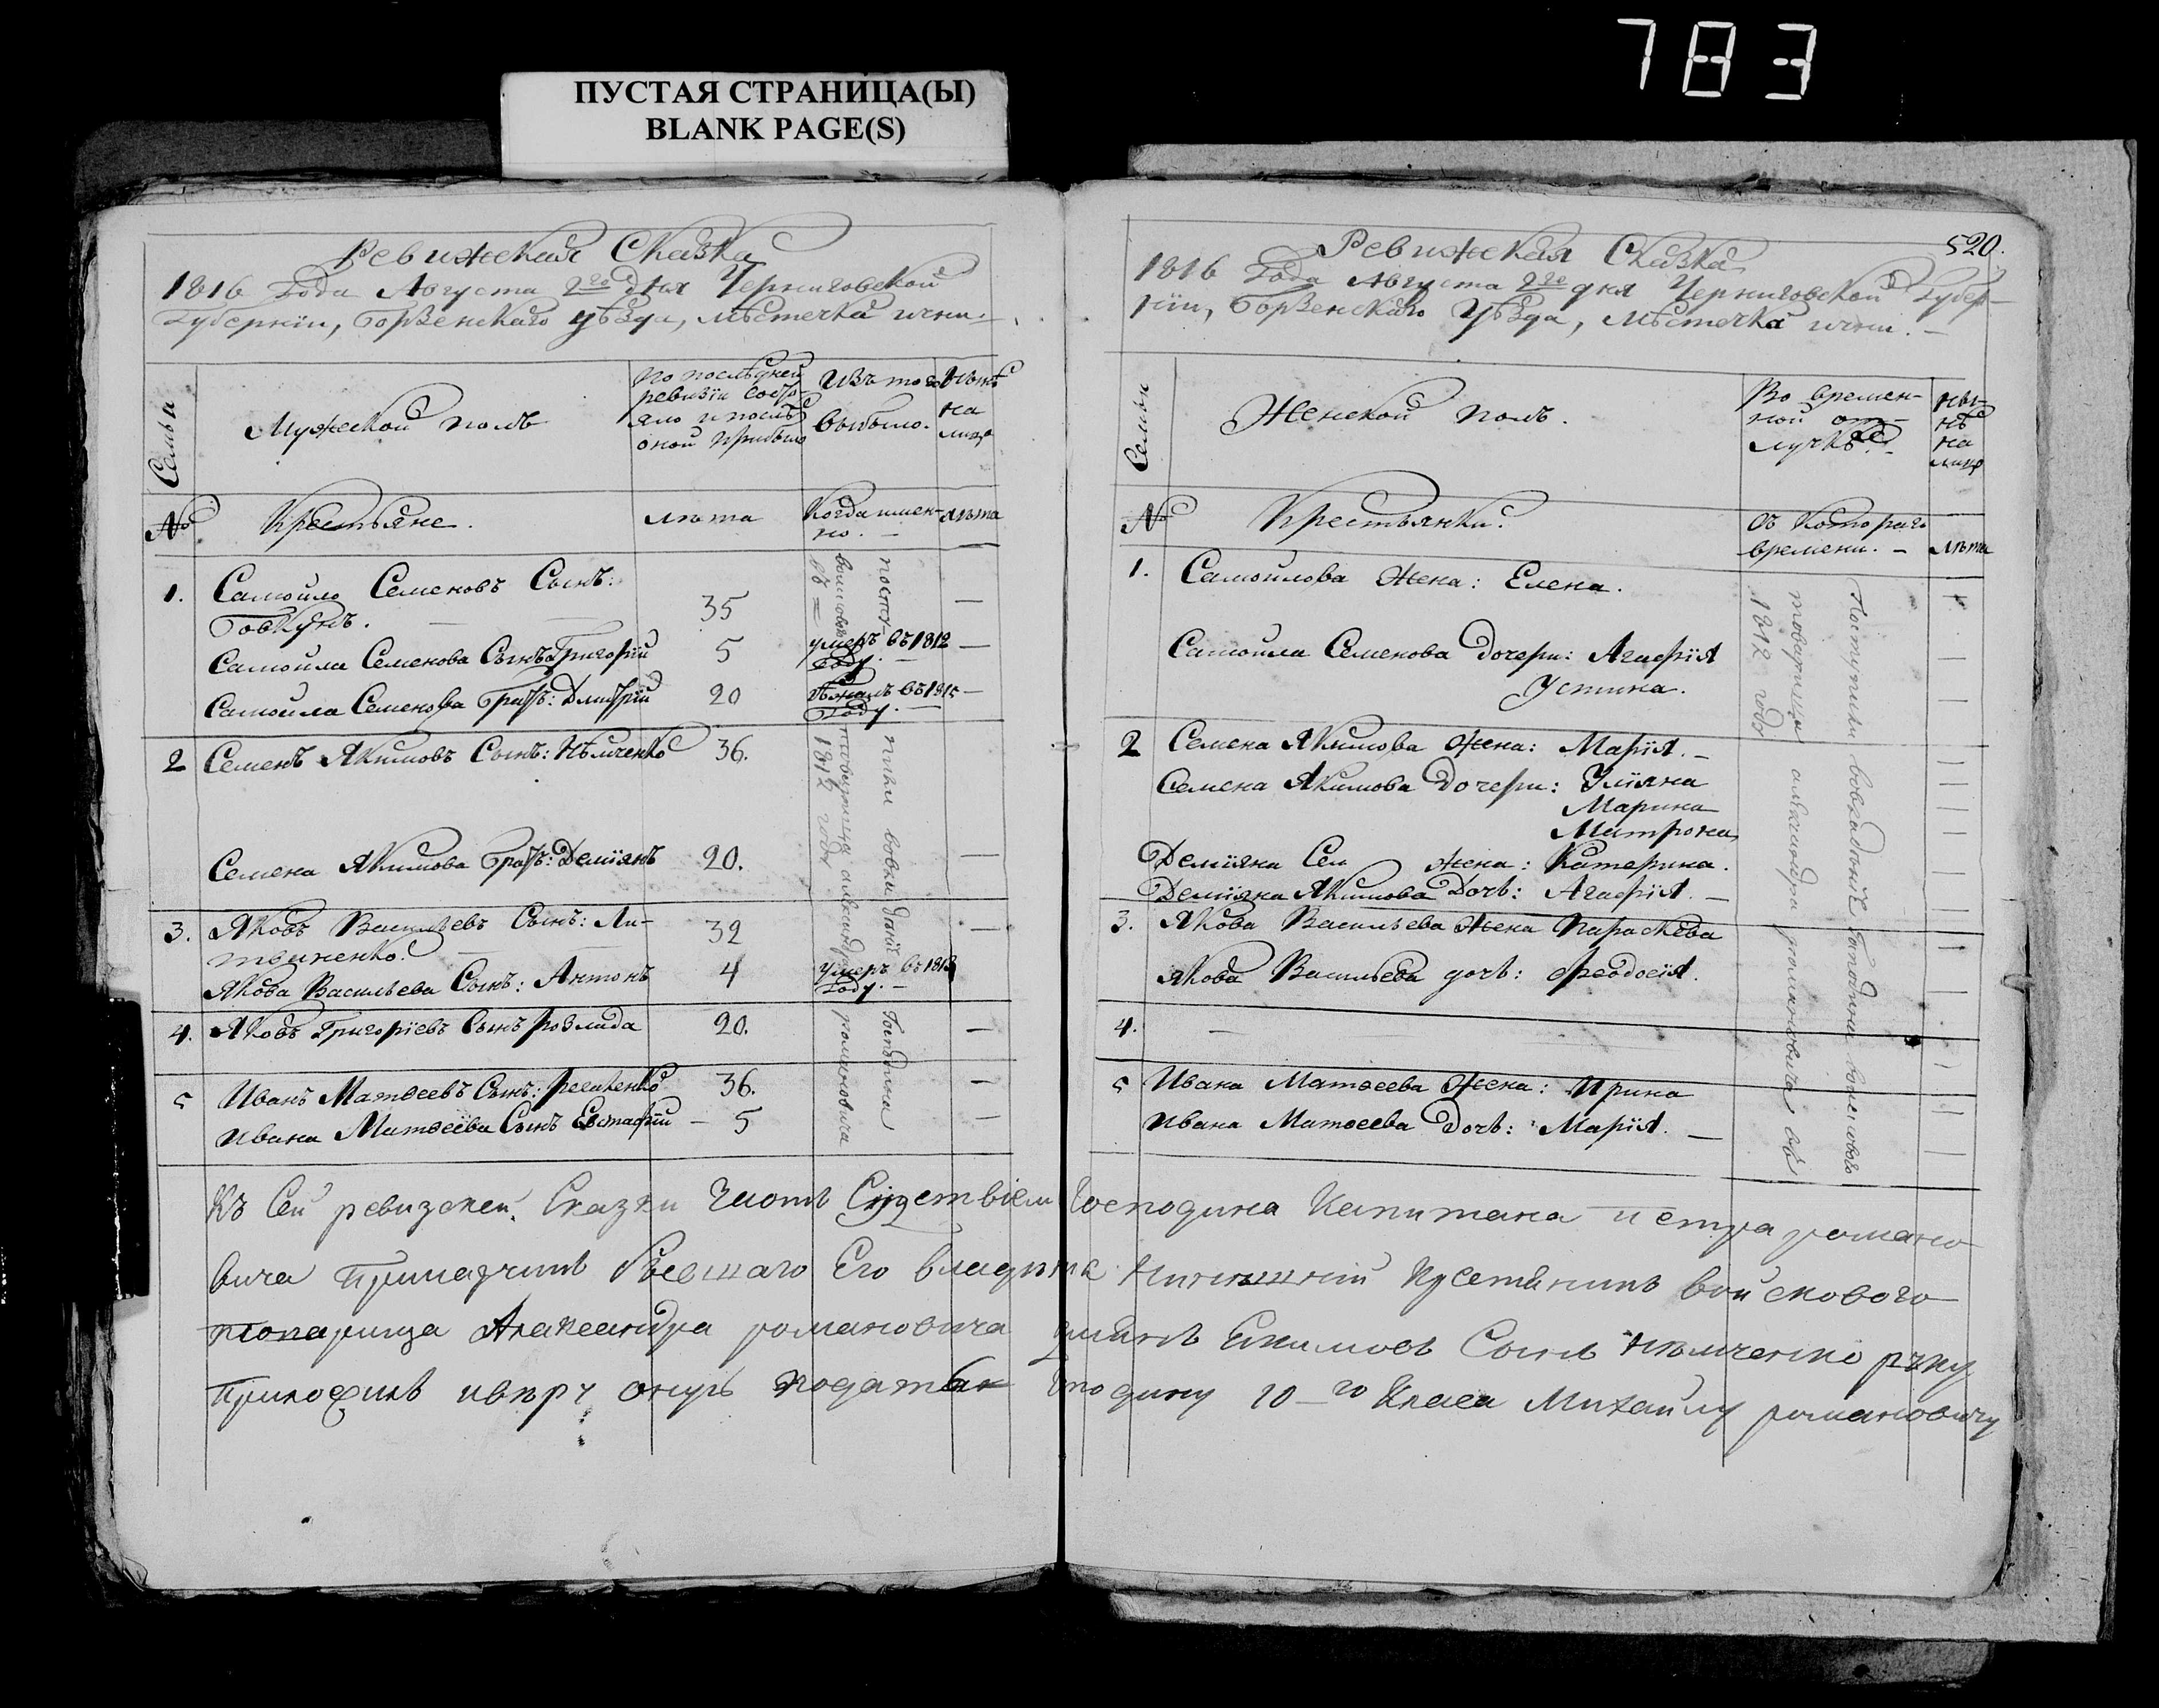 783
ПУСТАЯ СТРАНИЦА(Ы)
BLANK PAGE(S)
Ревижская Сказка
1816 Года Августа 2го Дня Черниговской
Губернїи, Борзенского уѣзда, мѣстечка ични.
Семьи
Мужеской полъ
По послѣдней
ревизїи состо-
яло и послѣ
оной прибыло
Изъ того
выбыло.
Нынѣ
на
лицо
№
Крестьяне.
лѣта
Когда имен-
но.
лѣта
1. Самойло Семеновъ Сынъ:
Бовкунъ. 35
Самойла Семенова Сынъ: Григорїй 5 умеръ въ 1812
Году.
Самойла Семенова Братъ: Дмитрїй 20 въ 181
Году.
2 Семенъ Якимовъ Сынъ: Нѣмченко 36.
Семена Якимова Братъ: Демїянъ 20.
3. Яковъ Васильевъ Сынъ: Ли-
твиненко. 32
Якова Васильева Сынъ: Антонъ 4 умеръ въ 1813
Году.
4. Яковъ Григорїевъ Сынъ Розлада 20.
5 Иванъ Матвеевъ Сынъ: 36.
Ивана Матвеева Сынъ Евстафїй 5
посту-
пили во владѣнїе Господина
войсковаго товарища александра романовича въ
1812 году
520.
Ревижская Сказка
1816 Года Августа 2го дня Черниговской Губер-
нїи, Борзенского Уѣзда, Мѣстечка ични.
Семьи
Женской полъ.
Во времен-
ной от-
лучкѣ.
ны-
нѣ
на
лицо
№
Крестьянки.
Съ Котораго
времени.
лѣта
1. Самойлова Жена: Елена.
Самойла Семенова Дочери: Агафїя
Устина.
2 Семена Якимова Жена: Марїя.
Семена Якимова Дочери: Улїяна
Марина
Матрона
Демїяна Сем Жена: Катерина.
Демїяна Якимова Дочь: Агафїя.
3. Якова Васильева Жена Параскева
Якова Васильева дочь: Феодосїя.
4.
5 Ивана Матвеева Жена: Ирина
Ивана Матвеева Дочь: Марїя.
Поступили во владѣнїе Господина войсковаго
товарища александра романовича въ
1812 году
Къ Сей ревизской Сказки Господина Капитана петра романо-
вича Его Крестянинъ войскового
товарища Александра романовича Екимовъ Сынъ Немченко руку
приложилъ 10-го Класа Михайлу романовичу